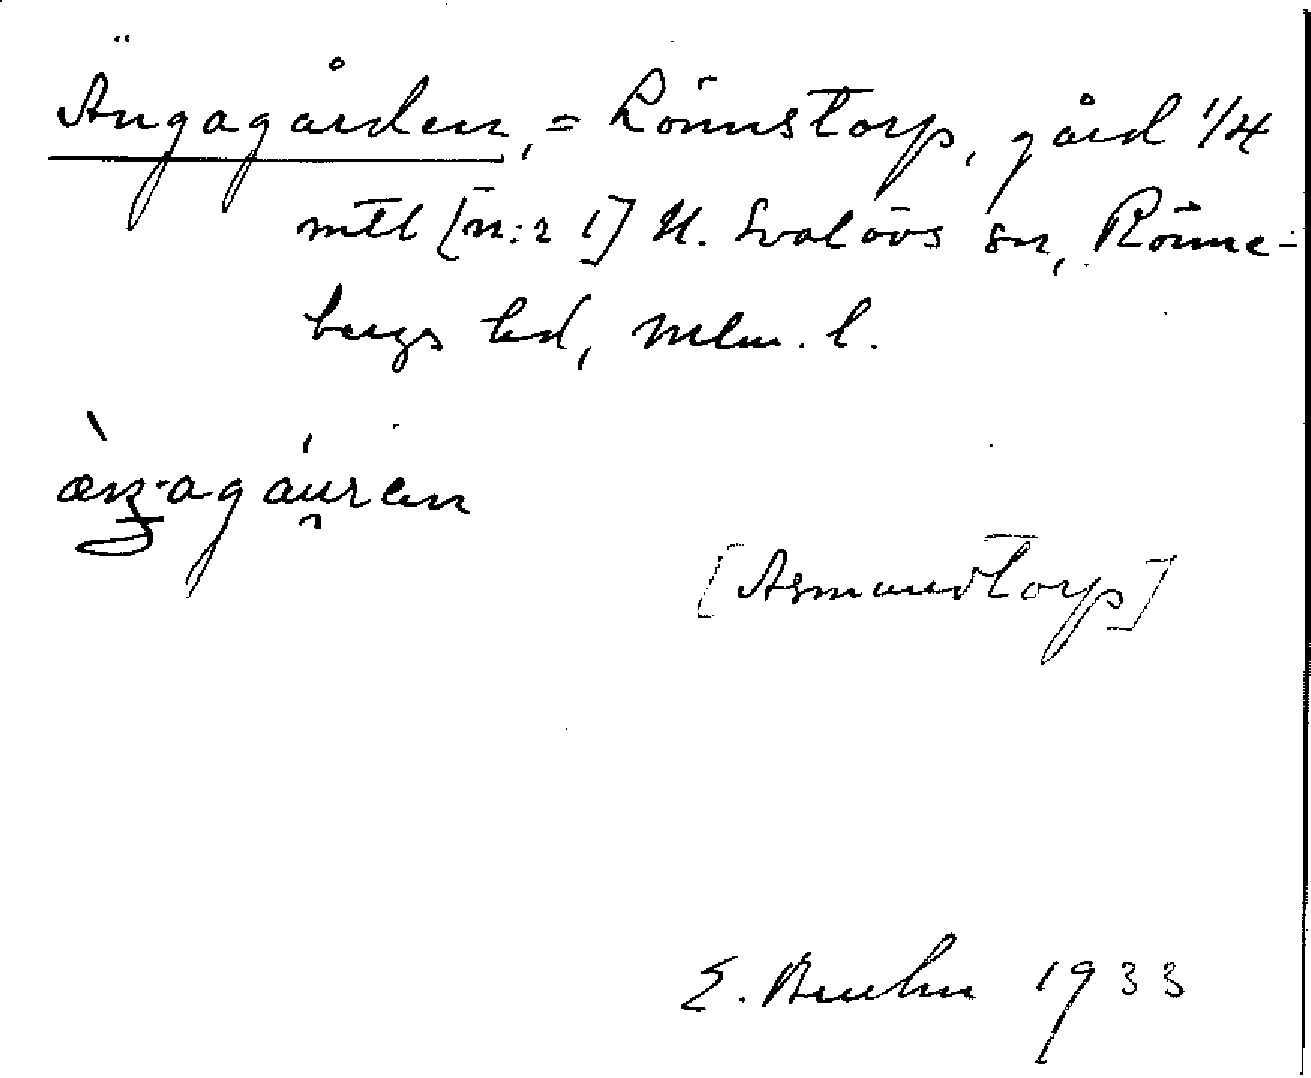 Ängagården, = Rönnstorp, gård 1/4
mtl [n:r 1] N. Svalövs sn, Rönne-
bergs hd, Mlm. l.
æŋagáu̯ren
[Asmundtorp]
E. Bruhn 1933